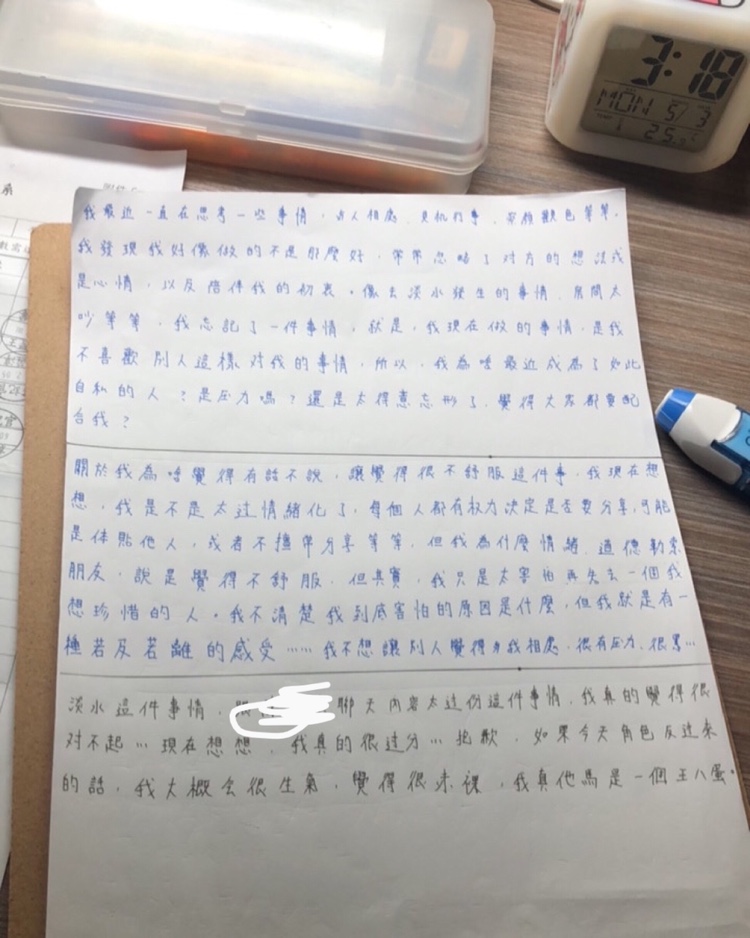 3:18
MON 5/3
25
我最近一直在思考一些事情,與人相處、見机行事、察顏觀色等等。
我發現我好像做的不是那麼好,常常忽略了对方的想法或
是心情,以及陪伴我的初衷。像去淡水發生的事情、房間太
吵等等,我忘記了一件事情,就是,我現在做的事情,是我
不喜歡別人這樣对我的事情,所以,我為啥最近成為了如此
自私的人?是压力嗎?還是太得意忘形了,覺得大家都要配
合我?
關於我為啥覺得有話不說,讓覺得很不舒服這件事,我現在想
想,我是不是太过情緒化了,每個人都有权力決定是否要分享,可能
是体貼他人,或者不擅常分享等等,但我為什麼情緒、道德勒索
朋友,說是覺得不舒服,但其實,我只是太害怕再失去一個我
想珍惜的人。我不清楚我到底害怕的原因是什麼,但我就是有一
種若及若離的感受⋯⋯我不想讓別人覺得与我相處,很有压力、很累⋯
淡水這件事情, 聊天內容太过份這件事情,我真的覺得很
对不起⋯現在想想,我真的很过分⋯抱歉,如果今天角色反过來
的話,我大概会很生氣,覺得很赤裸,我真他馬是一個王八蛋。